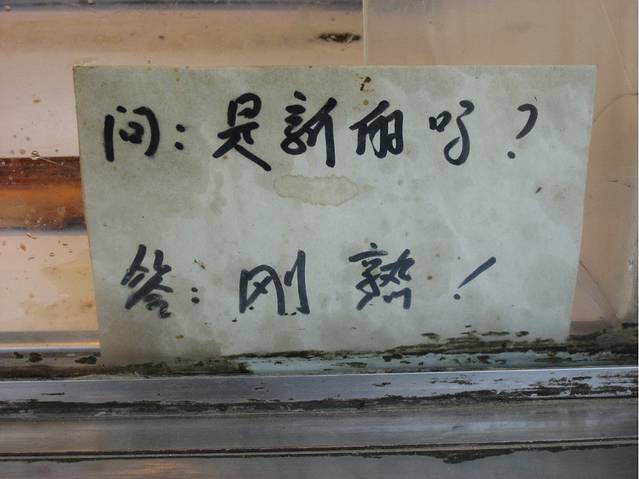 问：是新的吗？
答：刚熟！